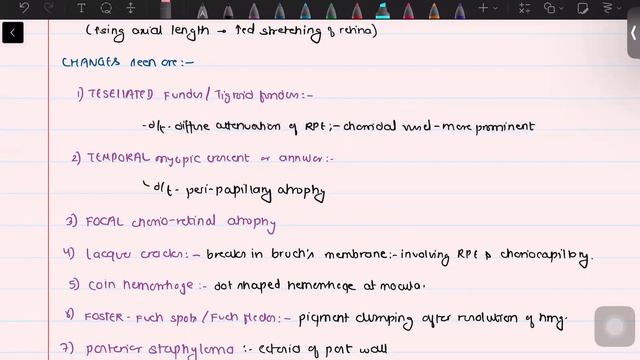 (rising axial length → ↑ed stretching of retina)
CHANGES seen are:-
1) TESELLATED Fundus/Tigroid fundus:-
-d/t- diffuse attenuation of RPE;- choroidal vessel- more prominent
2) TEMPORAL myopic crescent or annular:-
d/t- peri-papillary atrophy
3) FOCAL chorio-retinal atrophy
4) lacquer cracks:- breaks in bruch's membrane:- involving RPE & choriocapillary.
5) Coin hemorrhage:- dot shaped hemorrhage at macula.
6) FOSTER- Fuch spots/Fuch flecks:- pigment clumping after resolution of hmg.
7) posterior staphyloma :- ectasia of post wall